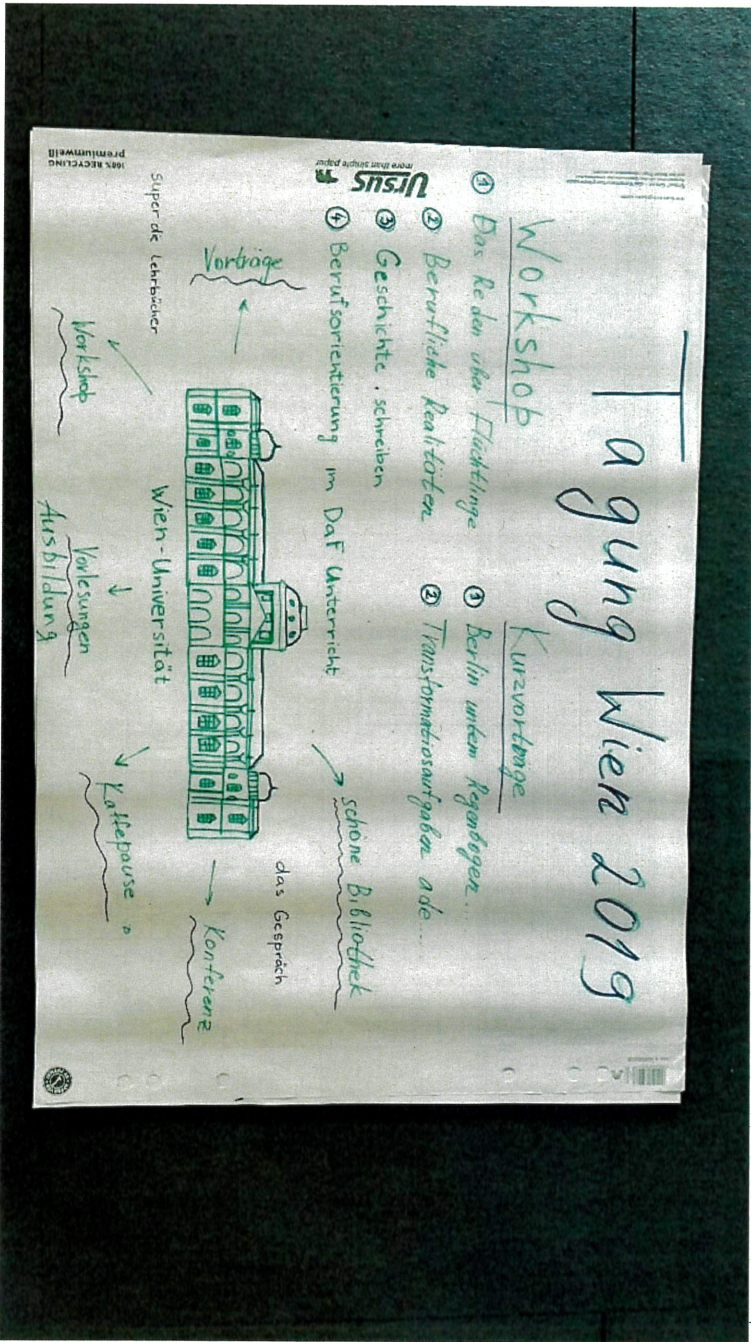 Tagung Wien 2019
Workshop
① Das Reden über Flüchtlinge
② Berufliche Realitäten
③ Geschichte. schreiben
④ Berufsorientierung im DaF Unterricht
Kurzvorträge
① Berlin unterm Regenbogen...
② Transformatiosaufgaben ade...
schöne Bibliothek
das Gespräch
Konferenz
Vorträge
Wien-Universität
super die Lehrbücher
Workshop
Vorlesungen
Ausbildung
Kaffepause
URSUS
more than simple paper
100% RECYCLING
premiumweiß